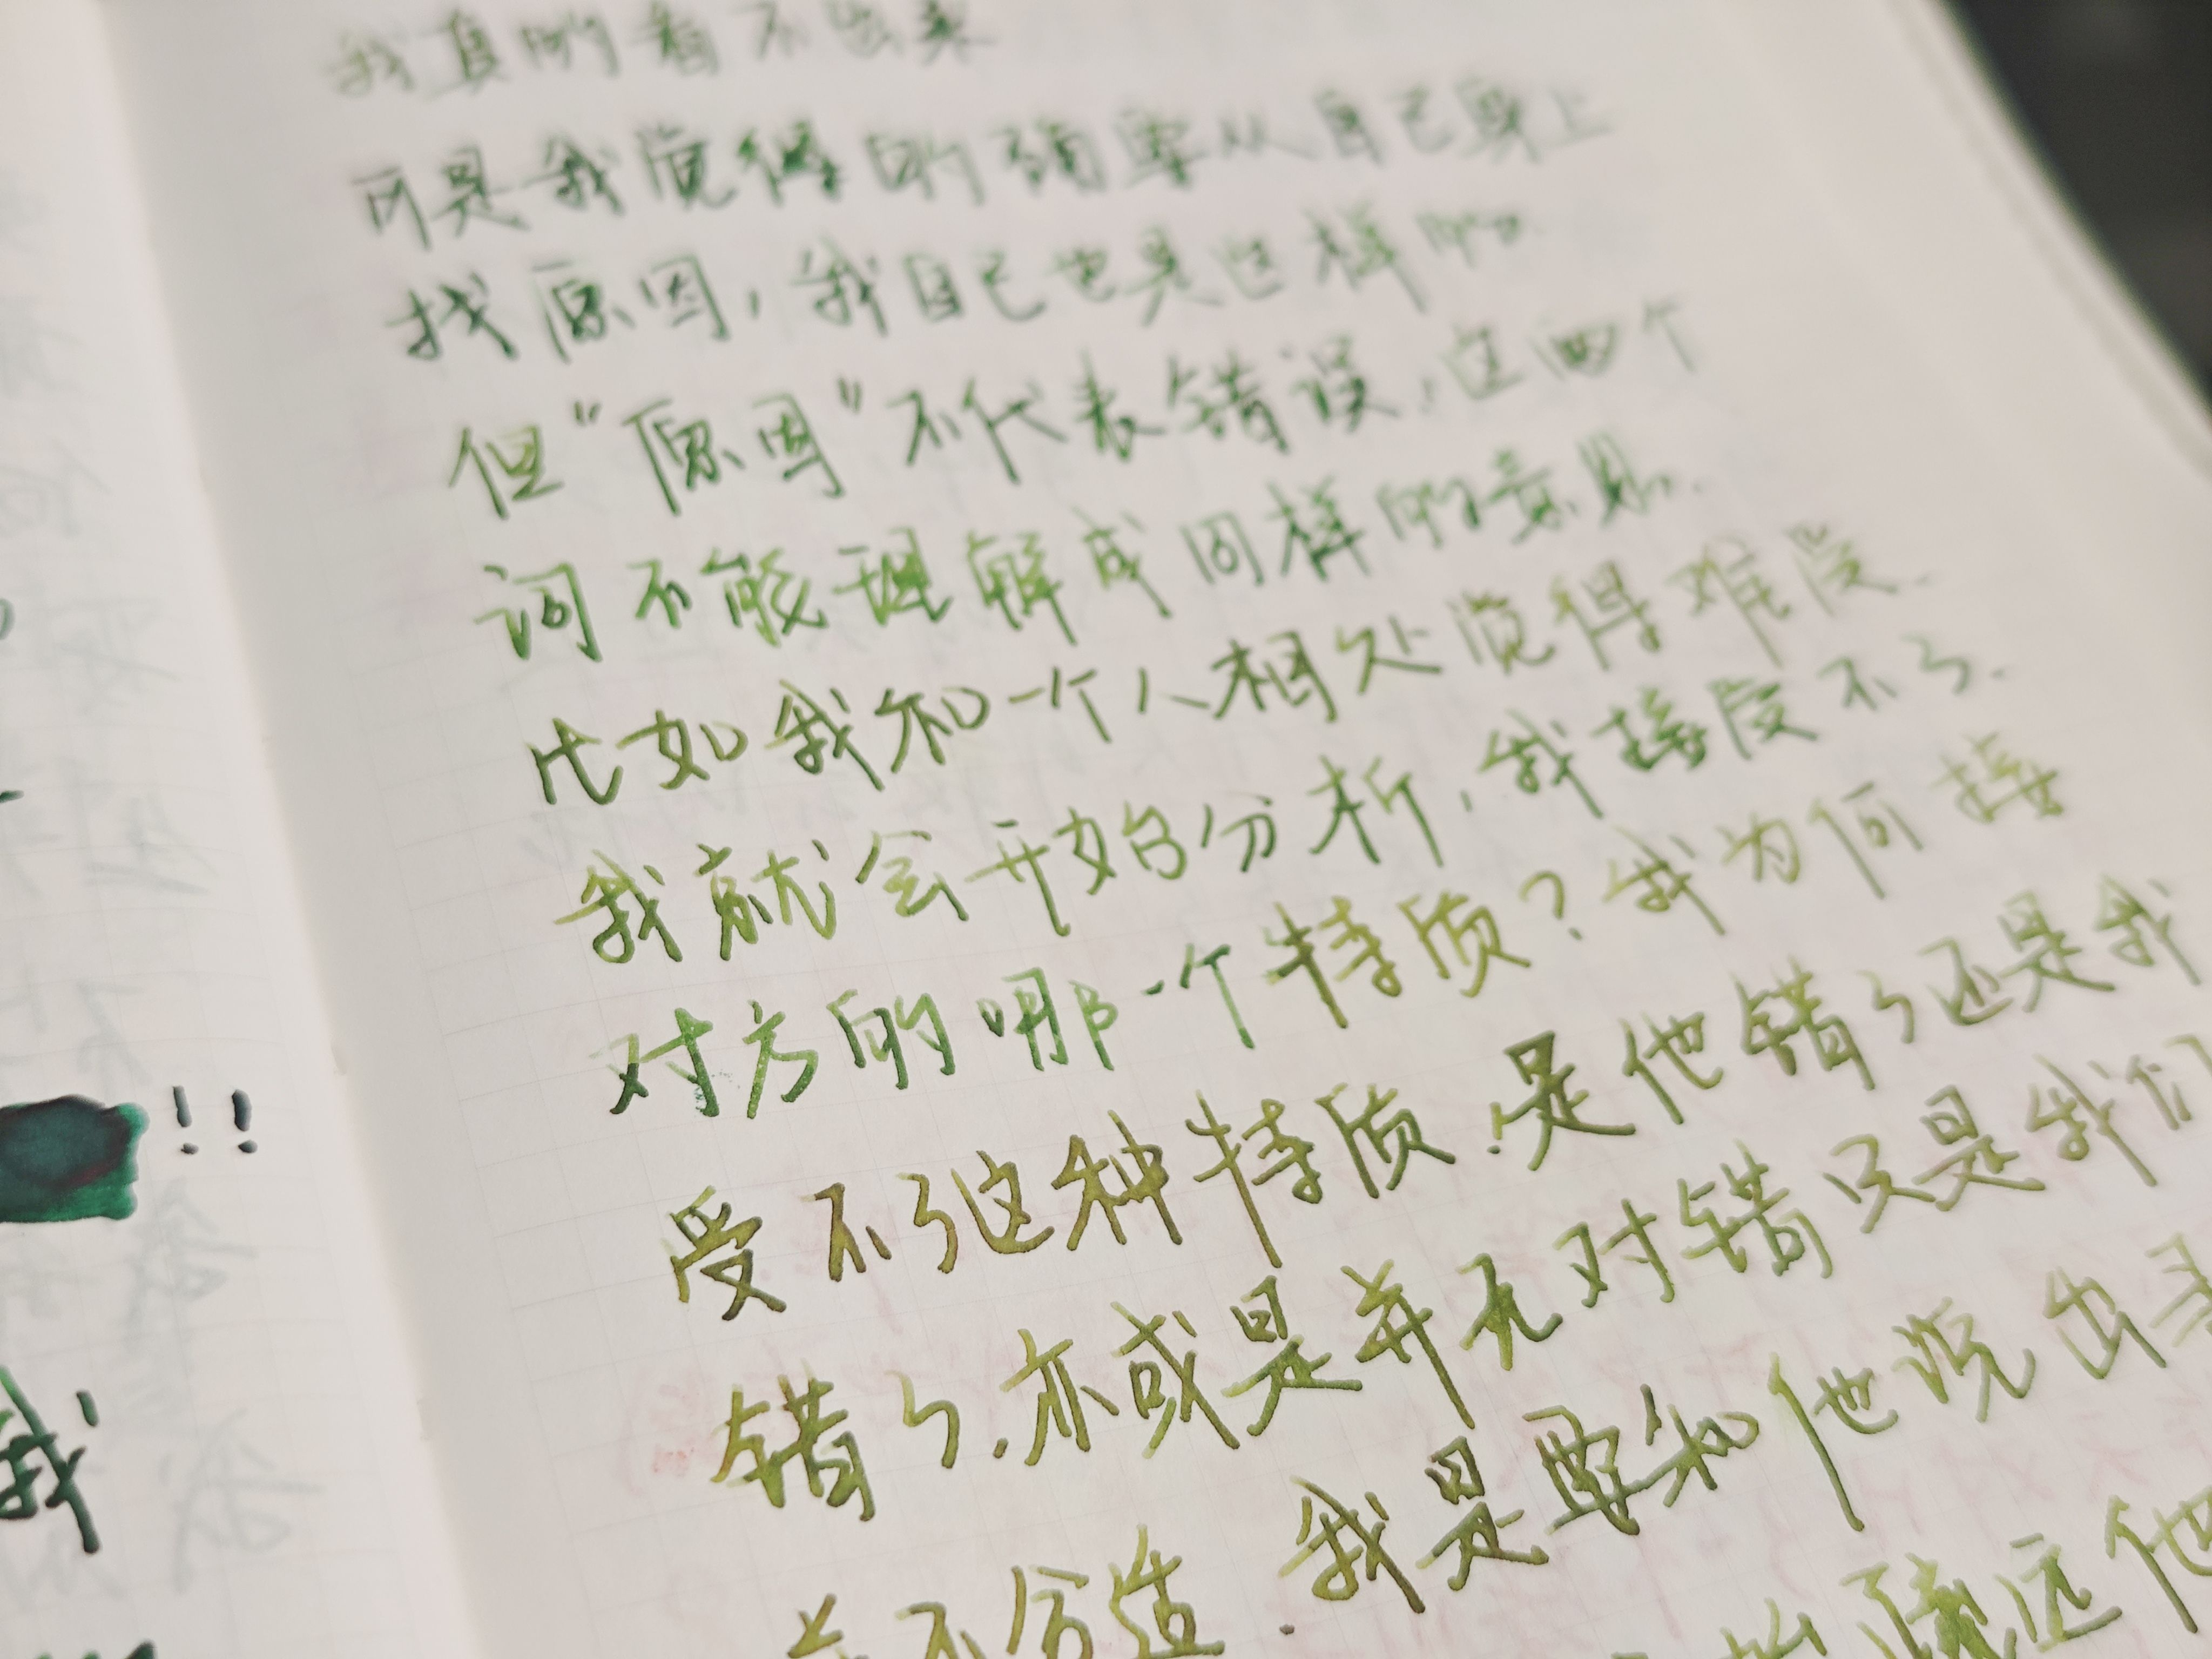 我真的看不出来
可是我觉得的确要从自己身上
找原因，我自己也是这样的
但“原因”不代表错误，这两个
词不能理解成同样的意思.
比如我和一个人相处觉得难受.
我就会开始分析，我接受不了.
对方的哪一个特质？我为何接
受不了这种特质.是他错了还是我
错了.亦或是并无对错只是我们
并不合适.我是要和他说出来
疏远他
!!
我